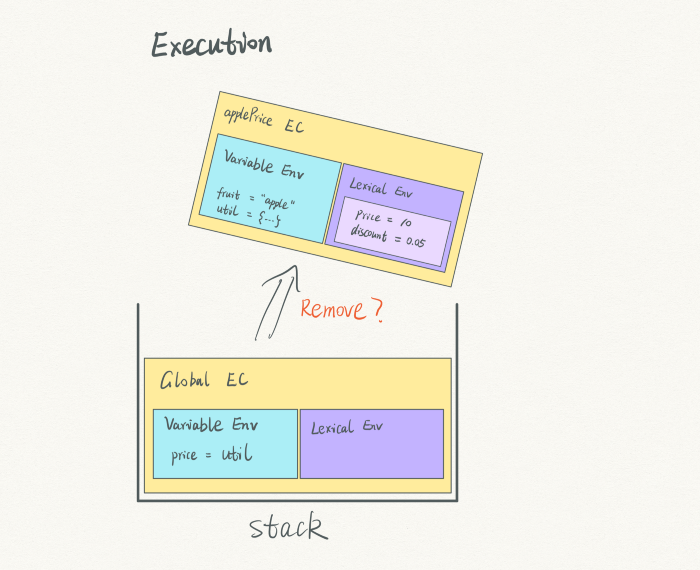 Execution
applePrice EC
Variable Env
fruit = "apple"
util = {...}
Lexical Env
price = 10
discount = 0.05
Remove?
Global EC
Variable Env
price = util
Lexical Env
stack